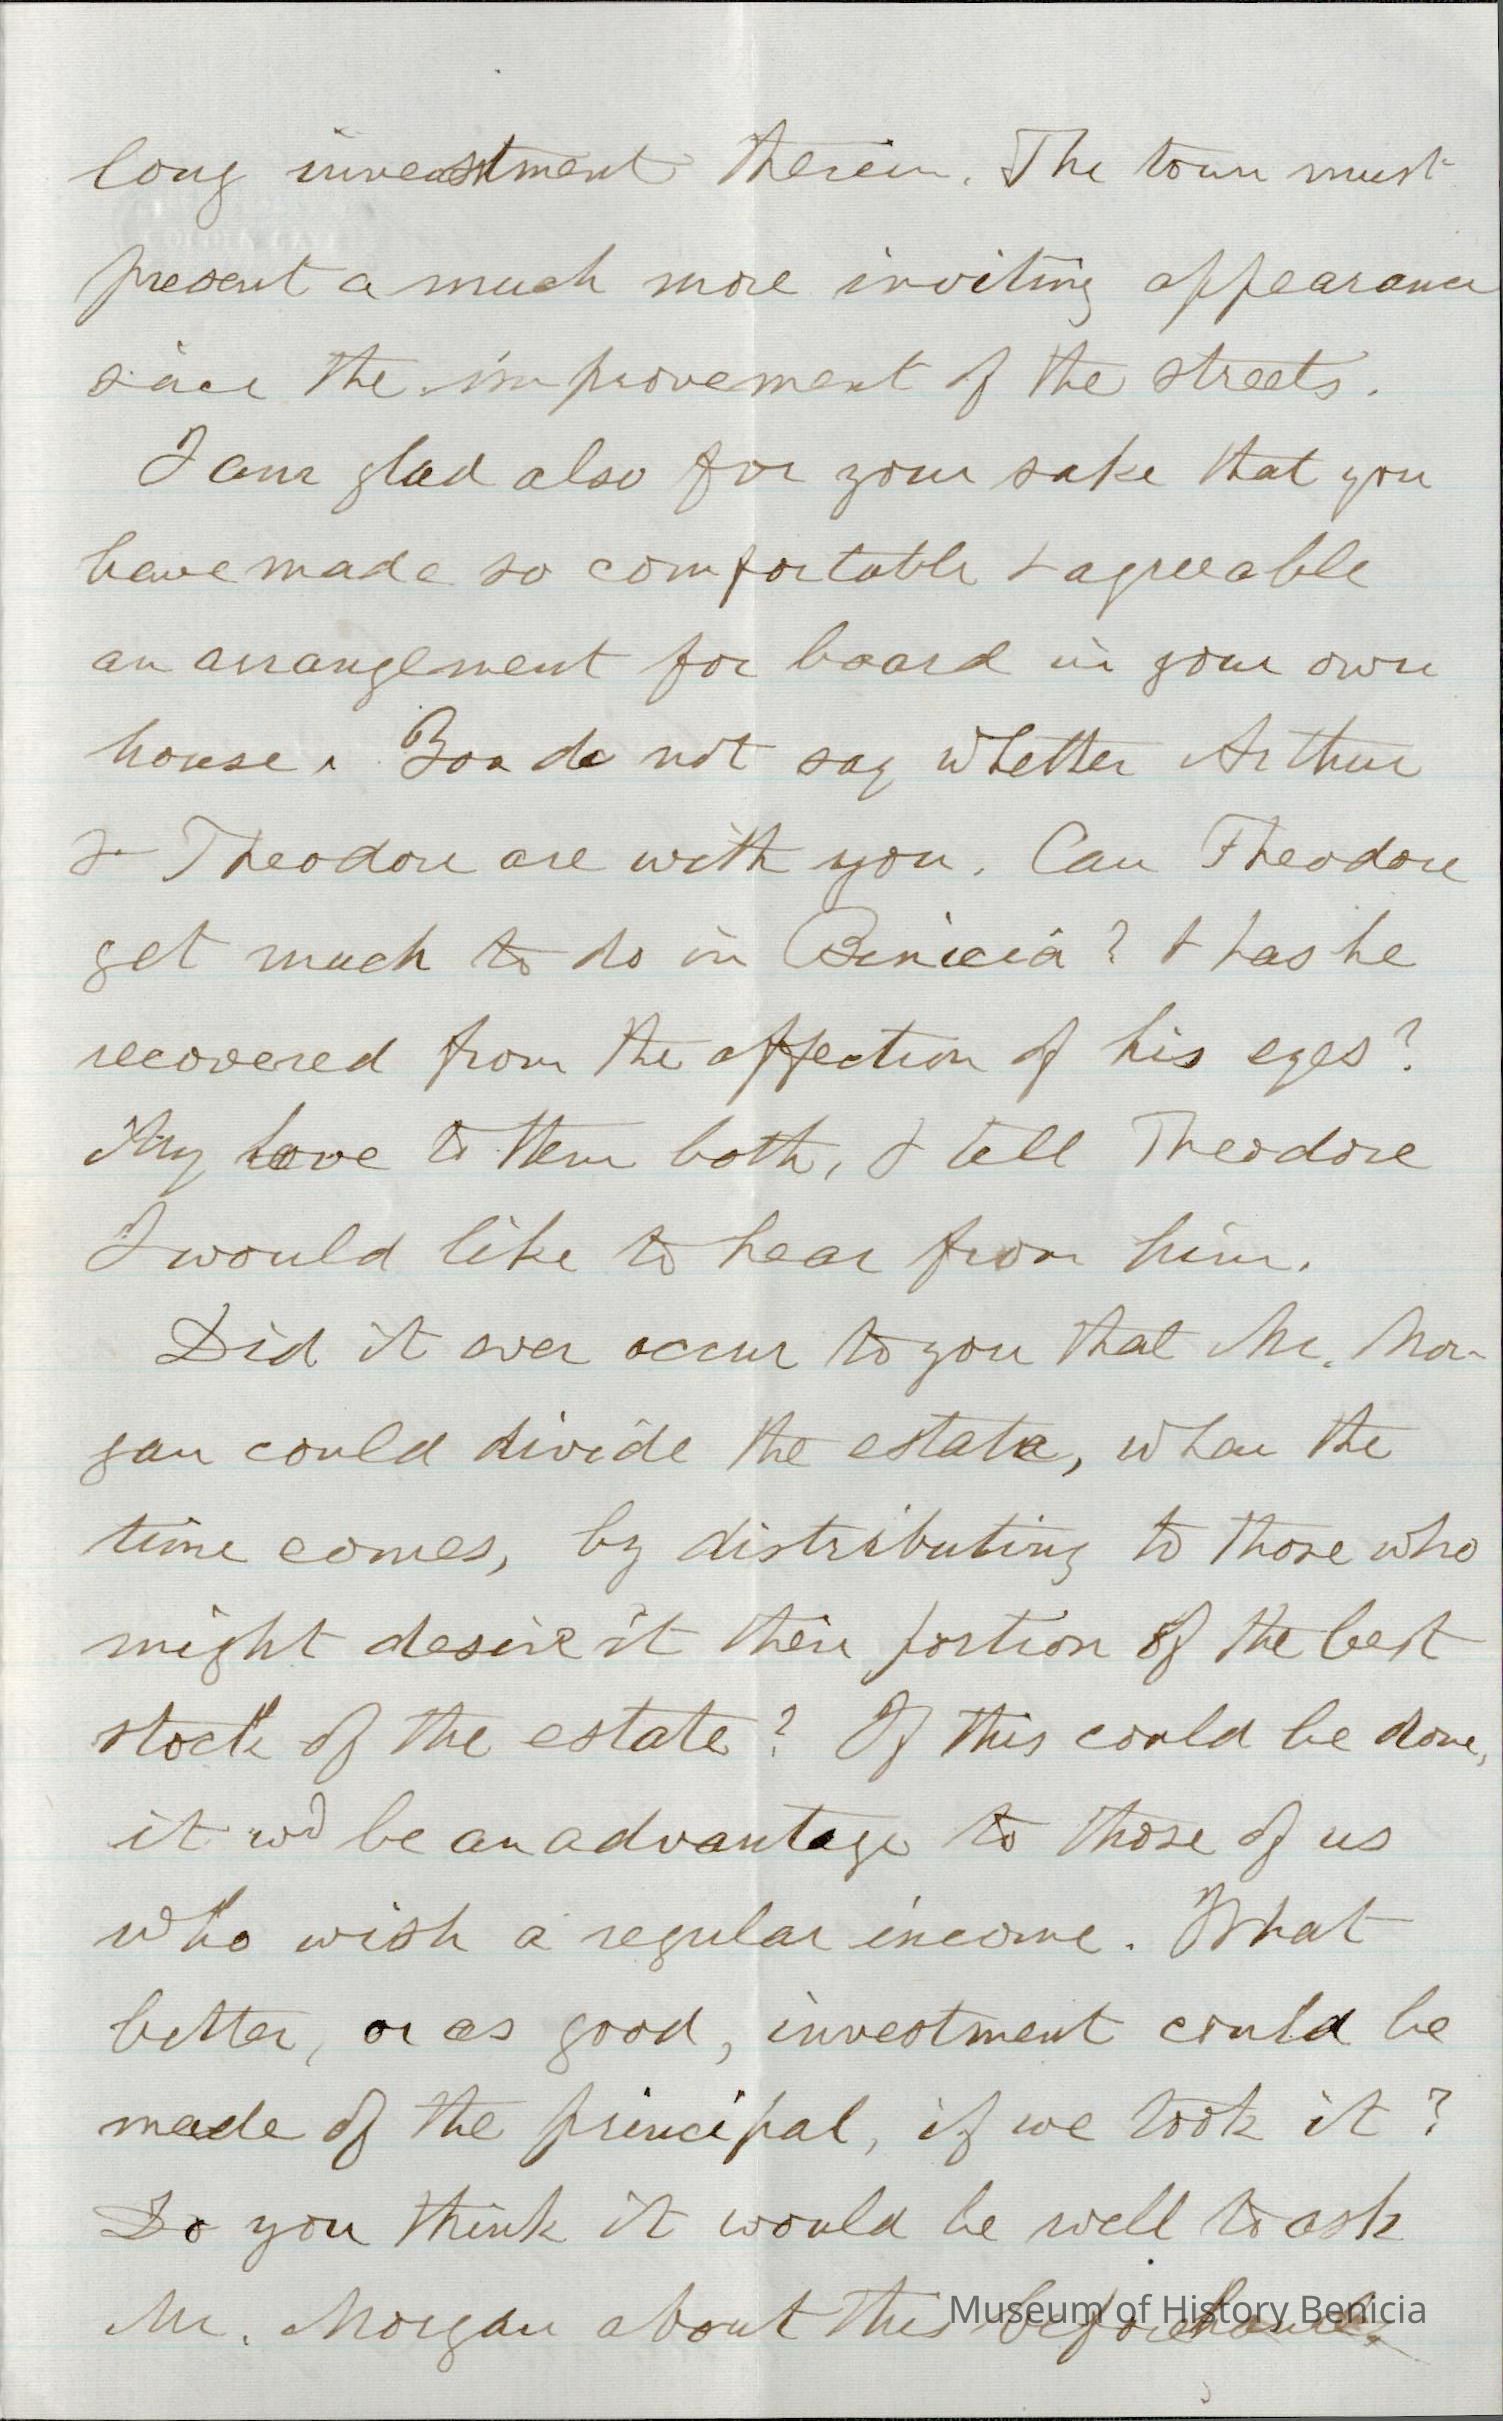 long investment therein. The town must
present a much more inviting appearance
since the improvement of the streets.
I am glad also for your sake that you
have made so comfortable & agreeable
an arrangement for board in your own
house. You do not say whether Arthur
& Theodore are with you. Can Theodore
get much to do in Benicia? & has he
recovered from the affection of his eyes?
My love to them both, & tell Theodore
I would like to hear from him.
Did it ever occur to you that Mr. Mor-
gan could divide the estate, when the
time comes, by distributing to those who
might desire it their portion of the best
stock of the estate? If this could be done,
it wd be an advantage to those of us
who wish a regular income. What
better, or as good, investment could be
made of the principal, if we took it?
Do you think it would be well to ask
Mr. Morgan about this beforehand?
Museum of History Benicia